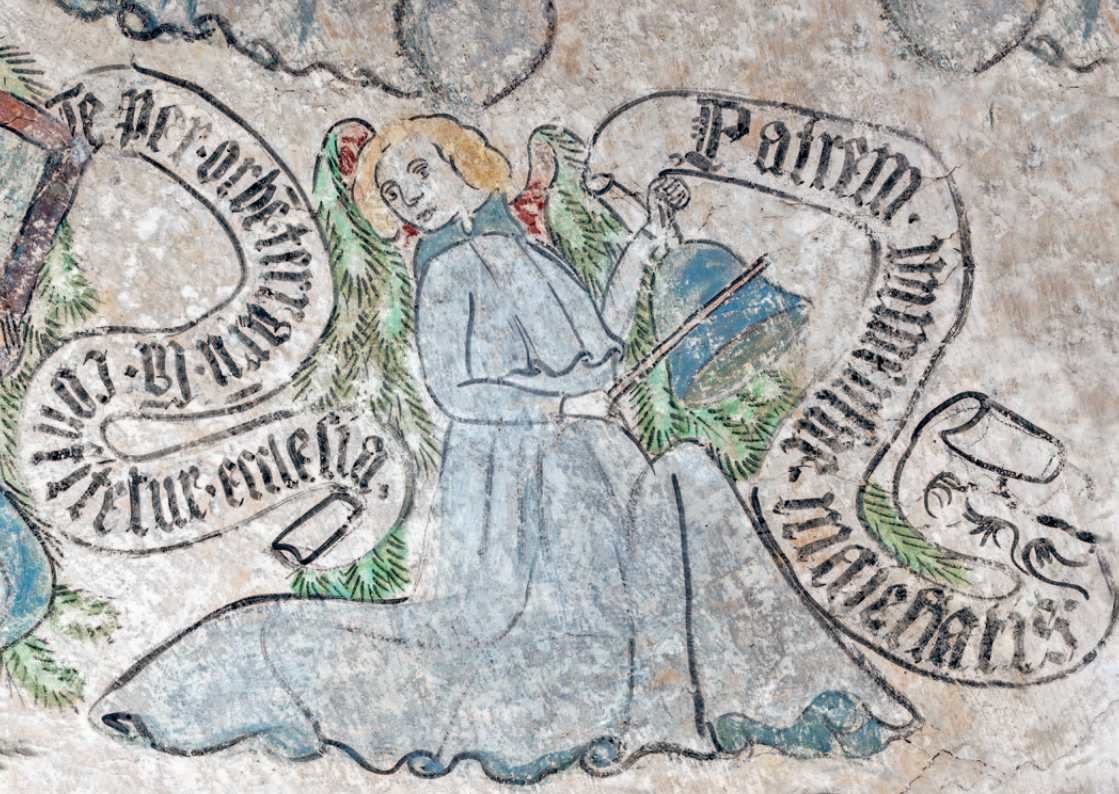 Te per·orbē·terrarū·sā·confitetur·ecclesia
Patrem·immense·maiestatis